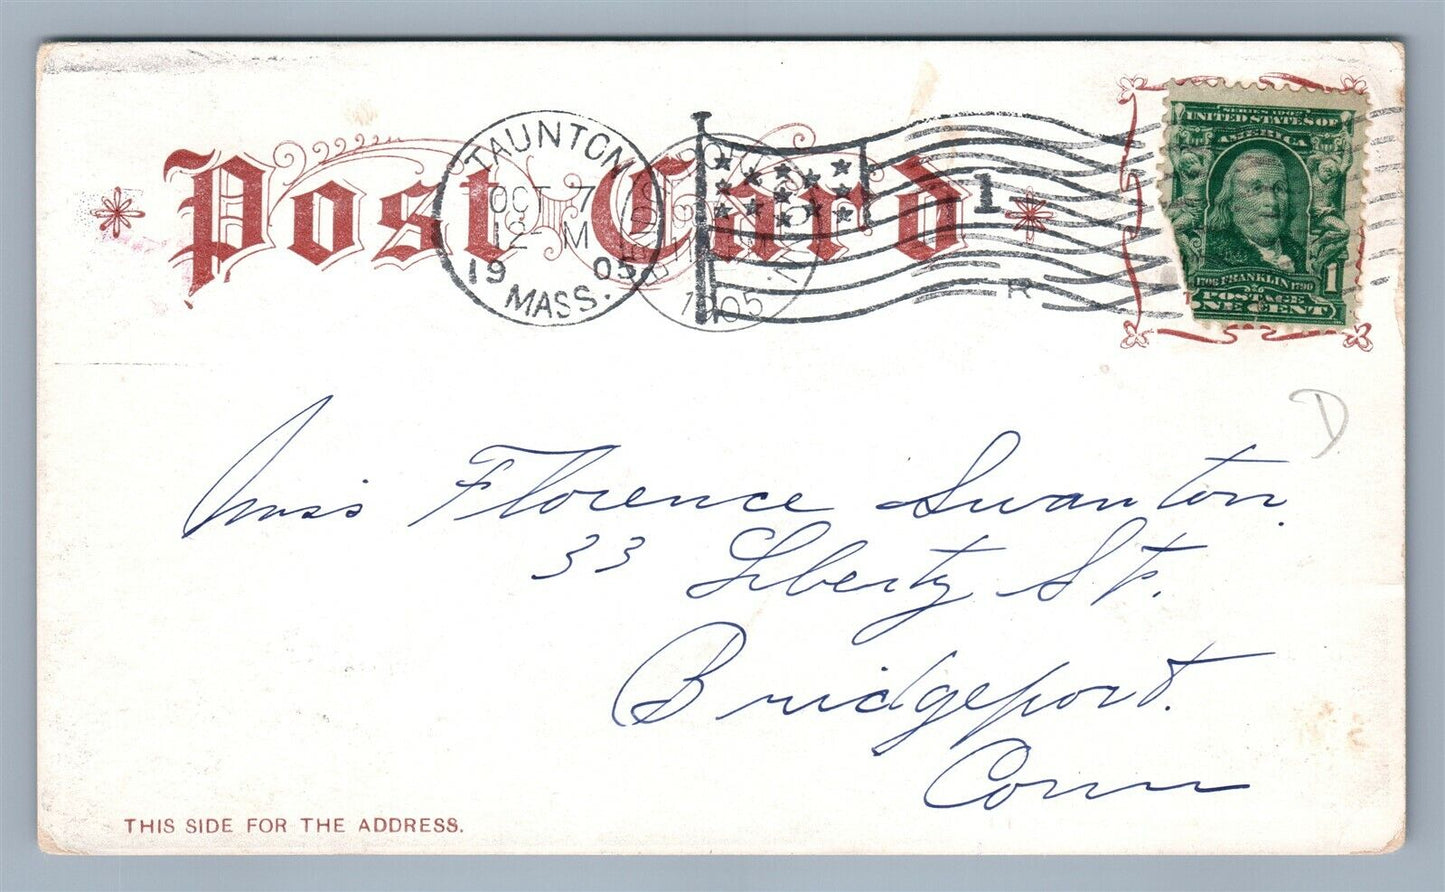 Post Card
TAUNTON
OCT 7
12 M
19 05
MASS.
1905
1
R
SERIES 1902
UNITED STATES OF
AMERICA
1706 FRANKLIN 1790
POSTAGE
1
NE CENT
D
Miss Florence Swanton.
33 Liberty St.
Bridgeport.
Conn
THIS SIDE FOR THE ADDRESS.